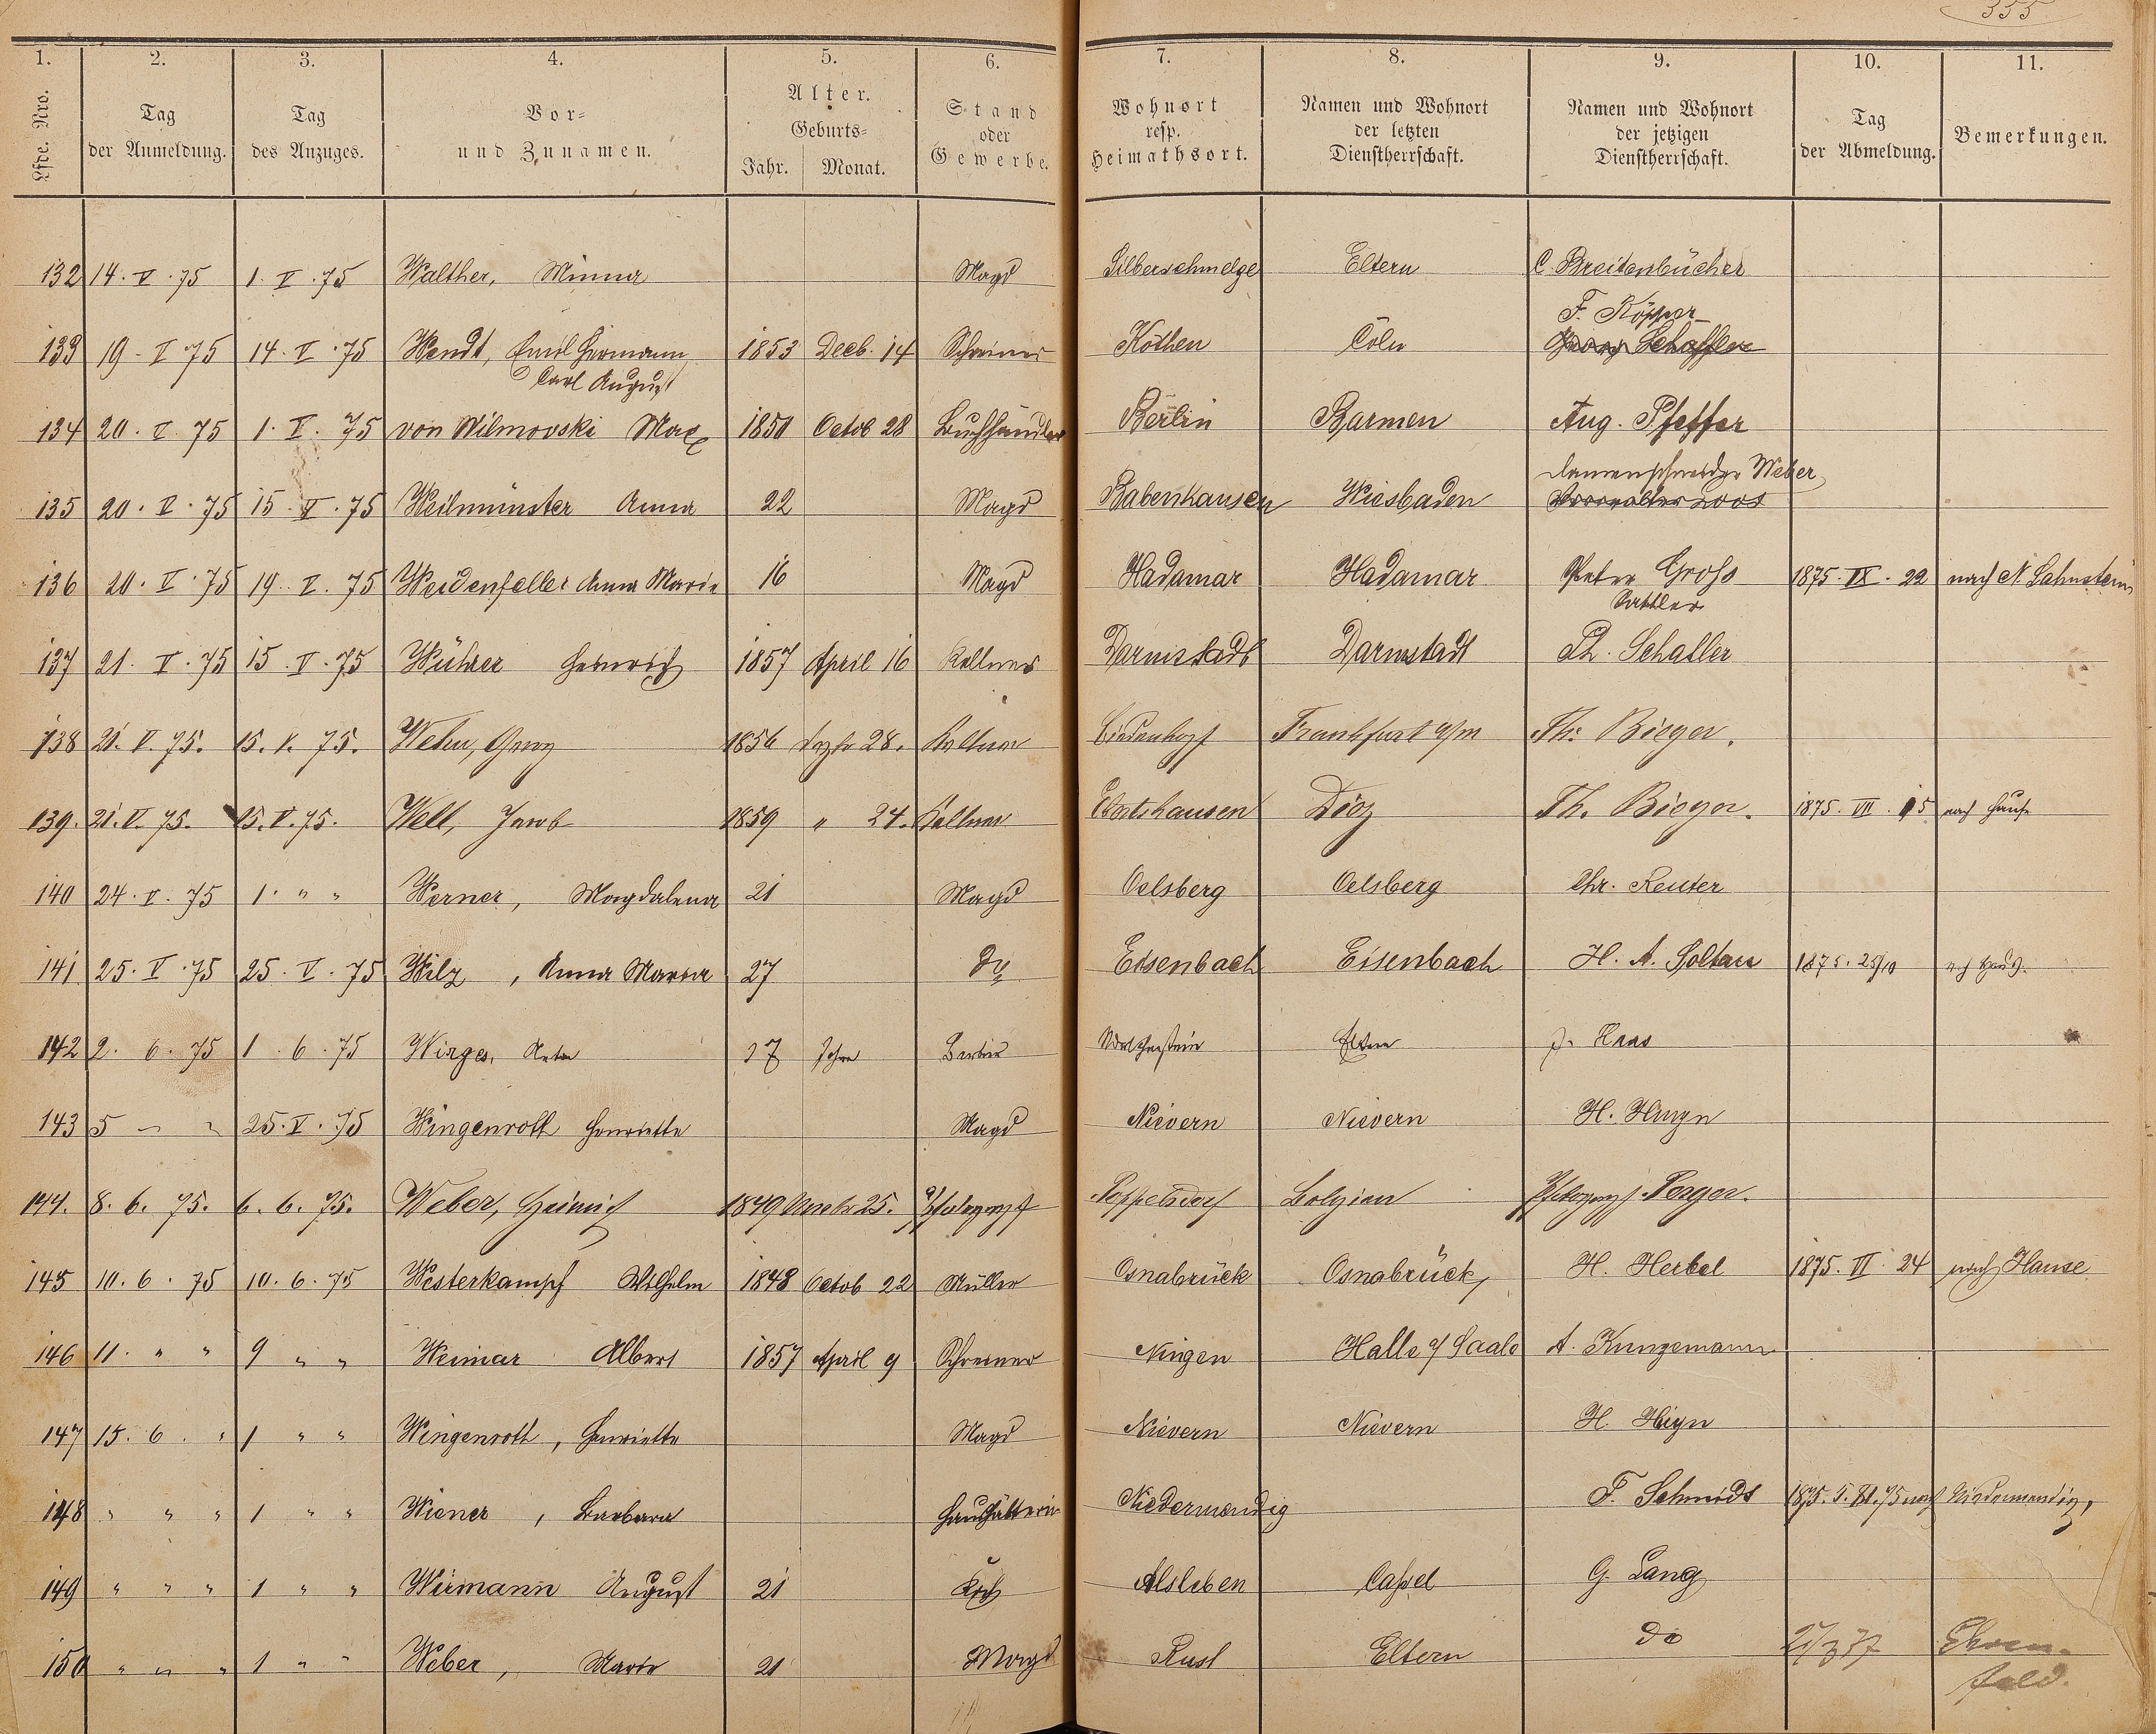 355
1. 2. 3. 4. 5. 6. 7. 8. 9. 10. 11.
Lfde. Nro. Tag der Anmeldung. Tag des Anzuges. Vor- und Zunamen. Alter. Geburts- Jahr. Monat. Stand oder Gewerbe. Wohnort resp. Heimathsort. Namen und Wohnort der letzten Dienstherrschaft. Namen und Wohnort der jetzigen Dienstherrschaft. Tag der Abmeldung. Bemerkungen.
132 14. V. 75 1. V. 75 Walther, Minna Magd Silberschmelze Eltern C. Breitenbücher
F. Köpper
133 19. V 75 14. V. 75 Wendt, Emil Hermann 1853 Decb. 14 Schreiner Köthen Cöln Georg Schäffler
Carl August
134 20. V. 75 1. V. 75 von Wilmovski Max 1850 Octob 28 Buchhändler Berlin Barmen Aug. Pfeffer
Damenschneider Weber
135 20. V. 75 15. V. 75 Weilmünster Anna 22 Magd Babenhausen Wiesbaden Verwalter Loos
136 20. V. 75 19. V. 75 Weidenfeller Anna Marie 16 Magd Hadamar Hadamar Peter Groß 1875. IX. 22 nach N. Lahnstein
Sattler
137 21. V. 75 15. V. 75 Wührer Heinrich 1857 April 16 Kellner Darmstadt Darmstadt Ph. Schaller
138 21. V. 75. 15. V. 75. Wehn, Georg 1856 Dezbr 28. Kellner Biedenkopf Frankfurt a/m Th. Bieger.
139. 21. V. 75. 15. V. 75. Well, Jacob 1859 " 24. Kellner Ebertshausen Diez Th. Bieger. 1875. VII. 15 nach Hause
140 24. V. 75 1. " " Werner, Magdalena 21 Magd Oelsberg Oelsberg Chr. Reuter
141 25. V. 75 25. V. 75 Wilz, Anna Maria 27 do Eisenbach Eisenbach H. A. Soltau 1875. 25/10 nach Haus.
142 2. 6. 75 1. 6. 75 Wirges, Anton 17 Jahre Barbier Eltern J. Haas
143 5 " " 25. V. 75 Wingenroth Henriette Magd Nievern Nievern H. Huyn
144. 8. 6. 75. 6. 6. 75. Weber, Heinrich 1849 25. Photograph Poppelsdorf Belgien Photograph Perger.
145 10. 6. 75 10. 6. 75 Westerkampf Wilhelm 1848 Octob 22 Müller Osnabrück Osnabrück, H. Herbel 1875. VI. 24 nach Hause
146 11. " " 9 " " Weimar Albert 1857 April 9 Schreiner Ningen Halle a/ Saale A. Kunzemann
147 15. 6. " 1 " " Wingenroth, Henriette Magd Nievern Nievern H. Heyn
148 " " " 1 " " Wiener, Barbara Haushälterin Niedermendig F. Schmidt nach Niedermendig,
149 " " " 1 " " Wirmann August 21 Koch Alsleben Caßel G. Lang
150 " " " 1 " " Weber, Marie 21 Magd Rust Eltern do Ehren-
feld.